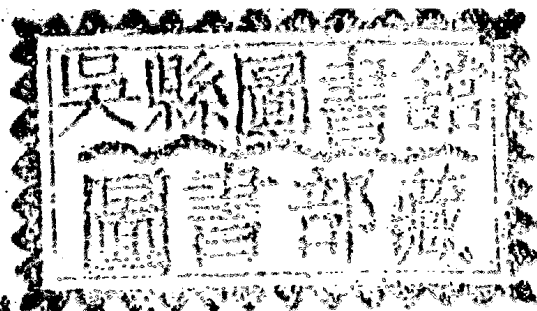 吳縣圖書館
圖書部藏